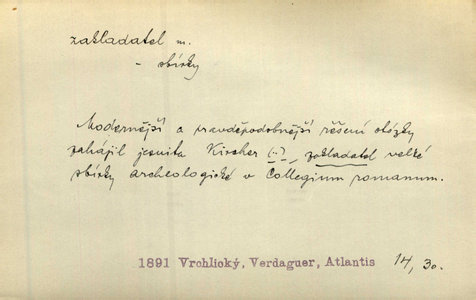 zakladatel m.
- sbírky
Modernější a pravděpodobnější řešení otázky
zahájil jesuita Kircher (..), zakladatel velké
sbírky archeologické v Collegium romanum.
1891 Vrchlický, Verdaguer, Atlantis 14, 30.